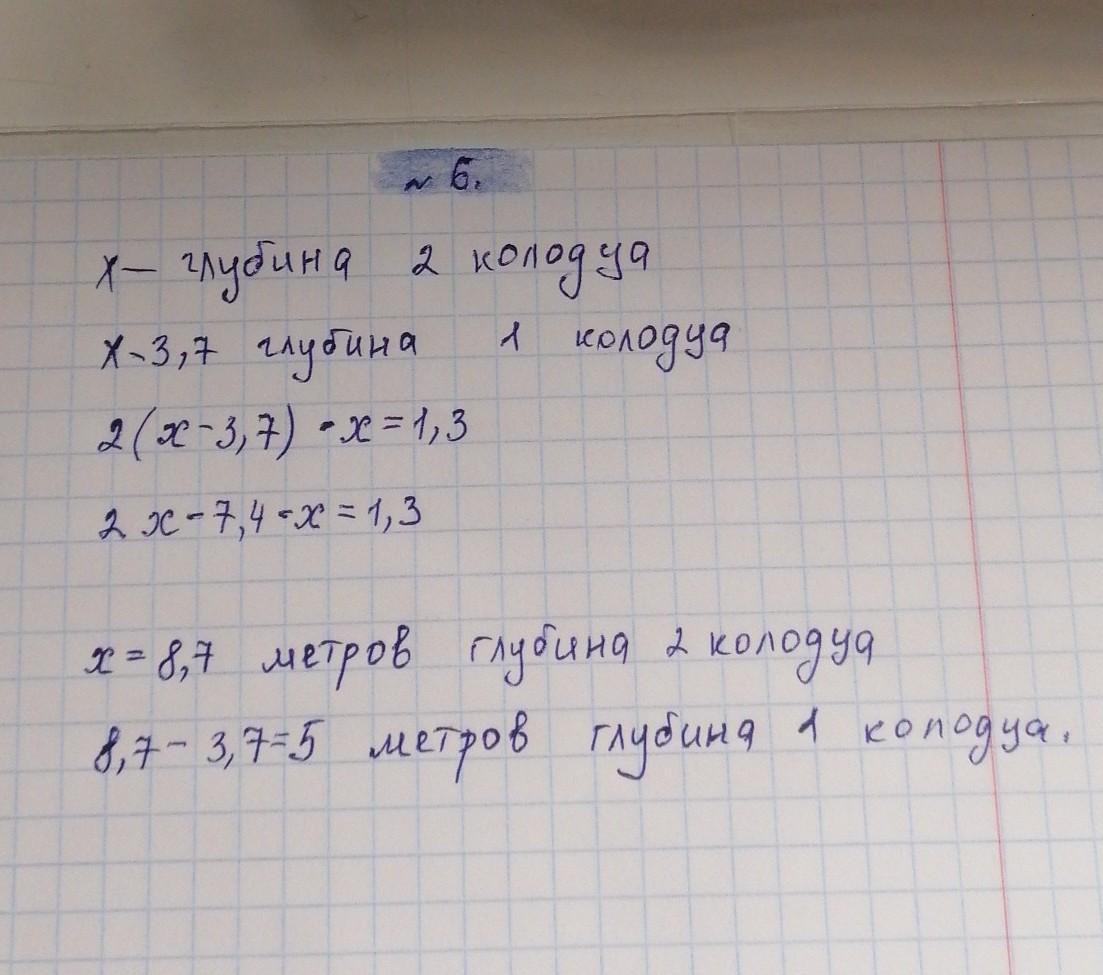 № 6.
x — глубина 2 колодца
x - 3,7 глубина 1 колодца
2(x - 3,7) - x = 1,3
2x - 7,4 - x = 1,3
x = 8,7 метров глубина 2 колодца
8,7 - 3,7 = 5 метров глубина 1 колодца.